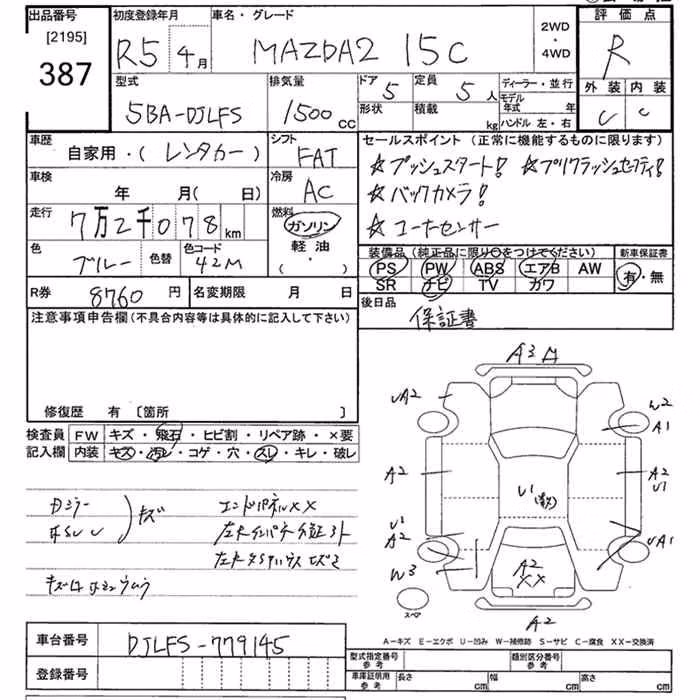 出品番号
[2195]
387
初度登録年月
R5 年 4月
車名・グレード
MAZDA2 15C
2WD
・
4WD
評価点
R
外装 内装
C C
型式
5BA-DJLFS
排気量
1500 CC
ドア 5
定員 5人
形状
積載 kg
ディーラー・並行
モデル年式 年
ハンドル 左・右
車歴
自家用・(レンタカー)
シフト
FAT
車検
年 月(日)
冷房
AC
走行
7万2千078 km
燃料
ガソリン
軽油
(・)
色
ブルー
色替
色コード
42M
R券 8760円
名変期限 月 日
セールスポイント(正常に機能するものに限ります)
☆プッシュスタート! ☆プリクラッシュセーフティ!
☆バックカメラ!
☆コーナーセンサー
装備品(純正品に限り○をつけてください)
新車保証書
PS PW ABS エアB AW
有・無
SR ナビ TV カワ
後日品
保証書
注意事項申告欄(不具合内容等は具体的に記入して下さい)
修復歴 有 〔箇所 〕
検査員
記入欄
FW キズ・飛石・ヒビ割・リペア跡・×要
内装 キズ・汚レ・コゲ・穴・スレ・キレ・破レ
キズ
エンドパネルXX
A3
UA2
W2
A1
A2
A2
U1
U1
U1
A2
UA1
W3
A2
XX
スペア
A2
A-キズ E-エクボ U-凹み W-補修跡 S-サビ C-腐食 XX-交換済
車台番号
DJLFS-779145
登録番号
型式指定番号
参考
類別区分番号
参考
車庫証明用
参考
長さ cm
幅 cm
高さ cm